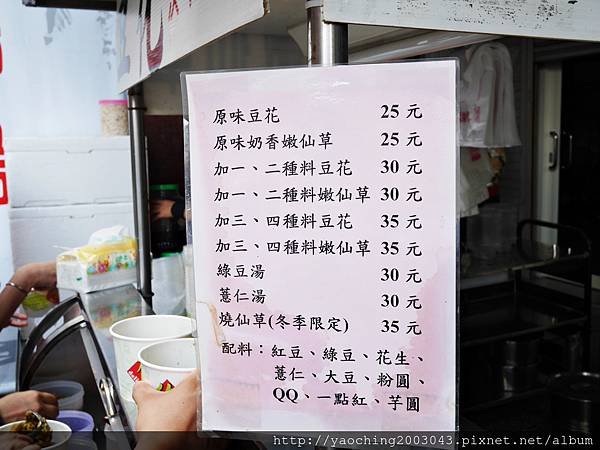 原味豆花 25 元
原味奶香嫩仙草 25 元
加一、二種料豆花 30 元
加一、二種料嫩仙草 30 元
加三、四種料豆花 35 元
加三、四種料嫩仙草 35 元
綠豆湯 30 元
薏仁湯 30 元
燒仙草(冬季限定) 35 元
配料：紅豆、綠豆、花生、
薏仁、大豆、粉圓、
QQ、一點紅、芋圓
http://yaoching2003043.pixnet.net/album